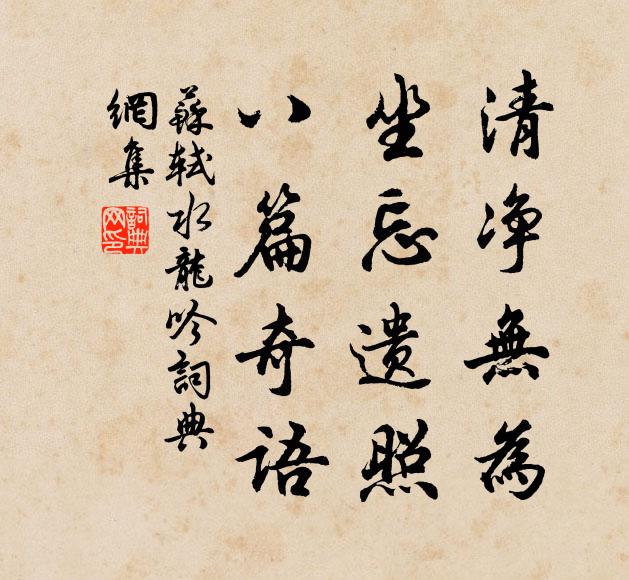 清净無為
坐忘遗照
八篇奇語
蘇軾水龍吟詞典
網集
詞典
网印